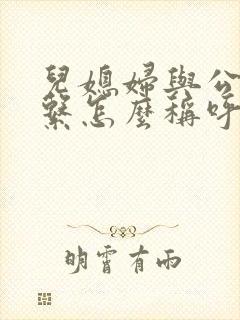 兒媳婦與公
繫怎麼稱呼
明霄有雨